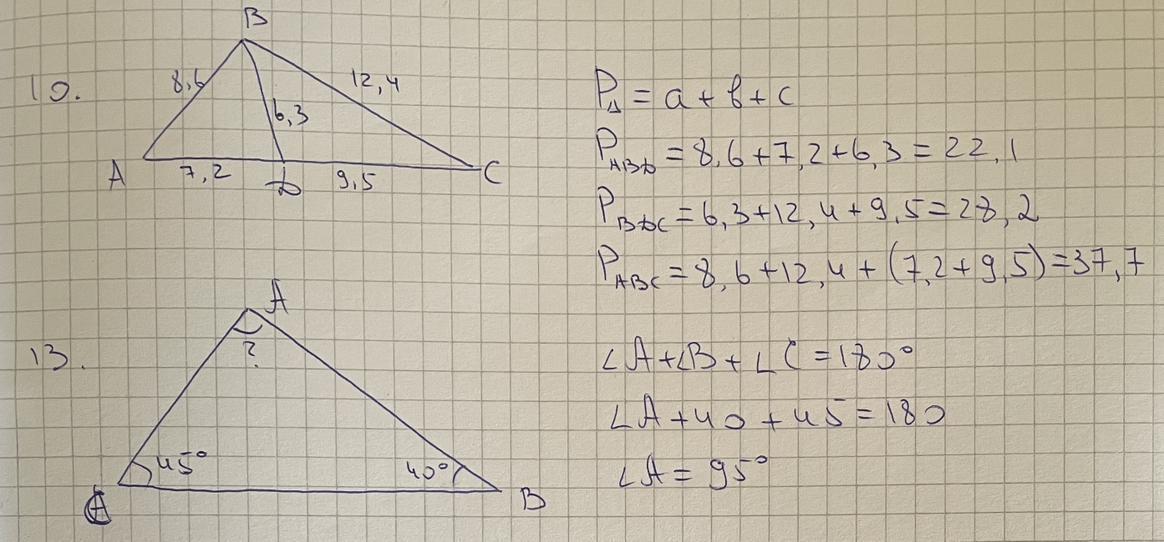 10.
B
8,6
12,4
6,3
A
7,2
D
9,5
C
P△ = a + b + c
P_ABD = 8,6+7,2+6,3 = 22,1
P_BDC = 6,3+12,4+9,5=28,2
P_ABC = 8,6+12,4+(7,2+9,5)=37,7
13.
A
?
45°
40°
C
B
∠A+∠B+∠C=180°
∠A+40+45=180
∠A = 95°